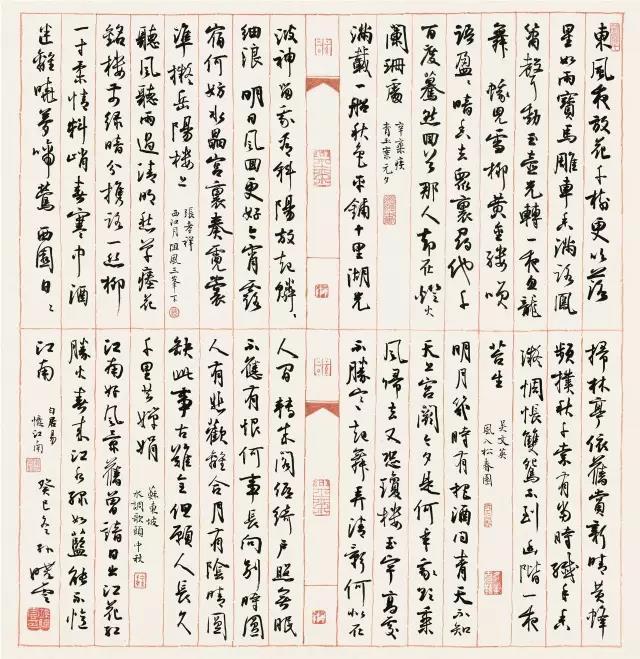 東風夜放花千樹更吹落
星如雨寶馬雕車香滿路鳳
簫聲動玉壺光轉一夜魚龍
舞蛾兒雪柳黃金縷笑
語盈々暗香去眾裏尋他千
百度驀然回首那人却在燈火
闌珊處
辛棄疾
青玉案元夕
滿載一船秋色平鋪十里湖光
波神留我看斜陽放起鱗々
細浪明日風回更好今宵露
宿何妨水晶宮裏奏霓裳
準擬岳陽樓上
張孝祥
西江月阻風三峯下
聽風聽雨過清明愁草瘞花
銘樓前綠暗分攜路一絲柳
一寸柔情料峭春寒中酒
迷離曉夢啼鶯西園日々
掃林亭依舊賞新晴黃蜂
頻撲秋千索有當時纖手香
凝惆悵雙鴛不到幽階一夜
苔生
吳文英
風入松春園
明月幾時有把酒問青天不知
天上宮闕今夕是何年我欲乘
風歸去又恐瓊樓玉宇高處
不勝寒起舞弄清影何似在
人間轉朱閣低綺戶照無眠
不應有恨何事長向別時圓
人有悲歡離合月有陰晴圓
缺此事古難全但願人長久
千里共嬋娟
蘇東坡
水調歌頭中秋
江南好風景舊曾諳日出江花紅
勝火春來江水綠如藍能不憶
江南
白居易
憶江南
癸巳冬